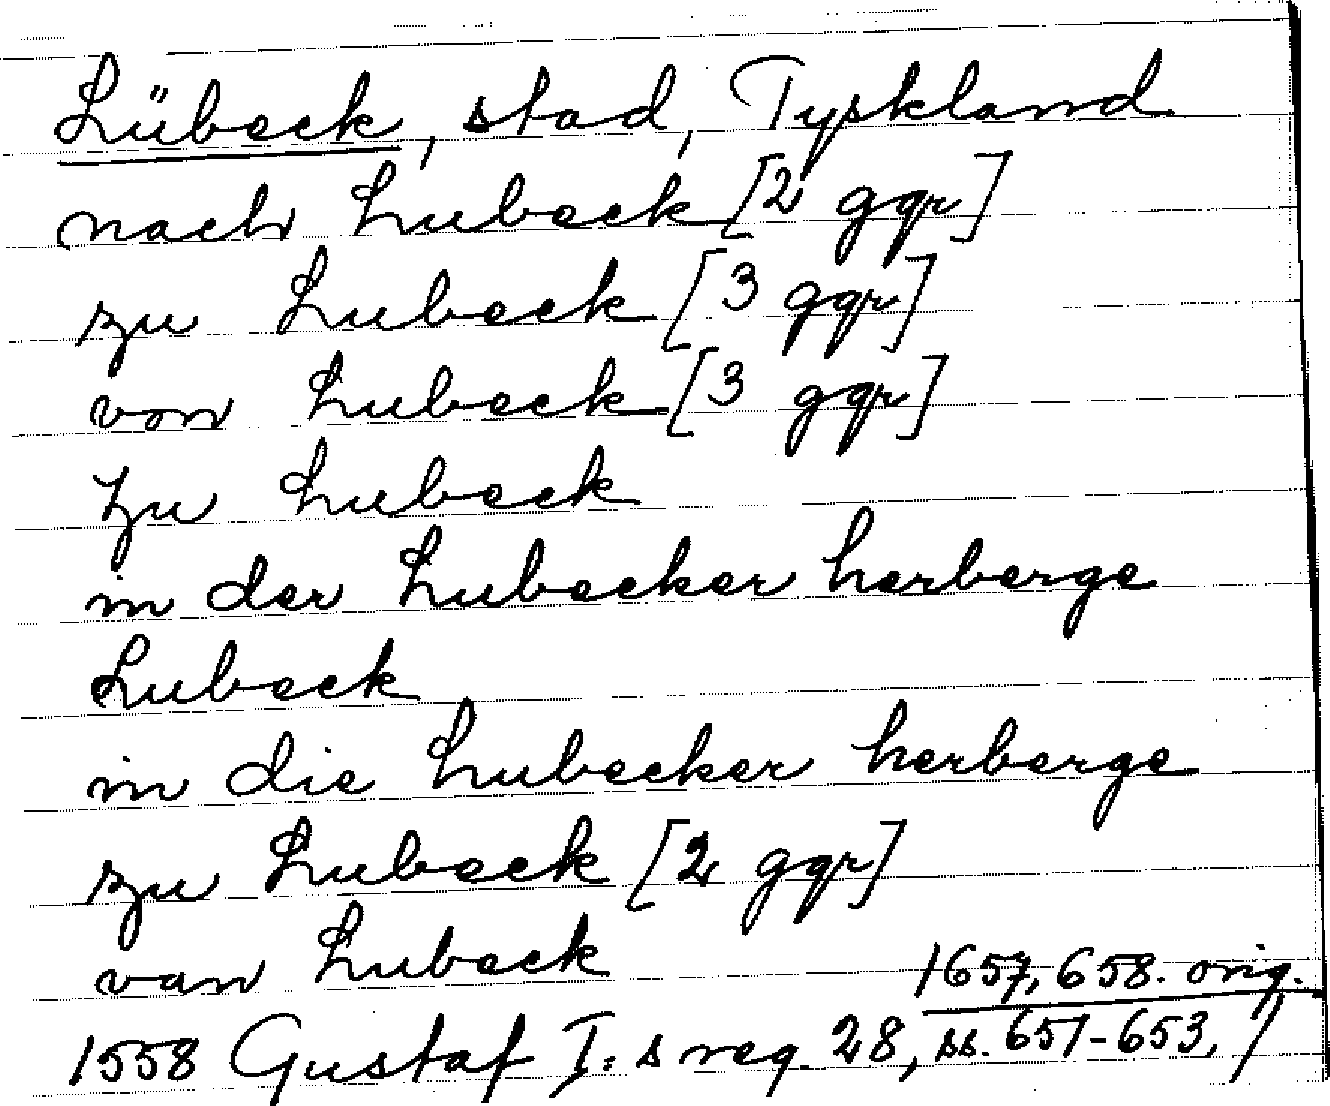 Lübeck, stad, Tyskland
nach Lubeck [2 ggr]
zu Lubeck [3 ggr]
von Lubeck [3 ggr]
zu Lubeck
in der Lubecker herberge
Lubeck
in die Lubecker herberge
zu Lubeck [2 ggr]
van Lubeck
1657, 658. orig.
1558 Gustaf I:s reg. 28, ss. 651-653, /